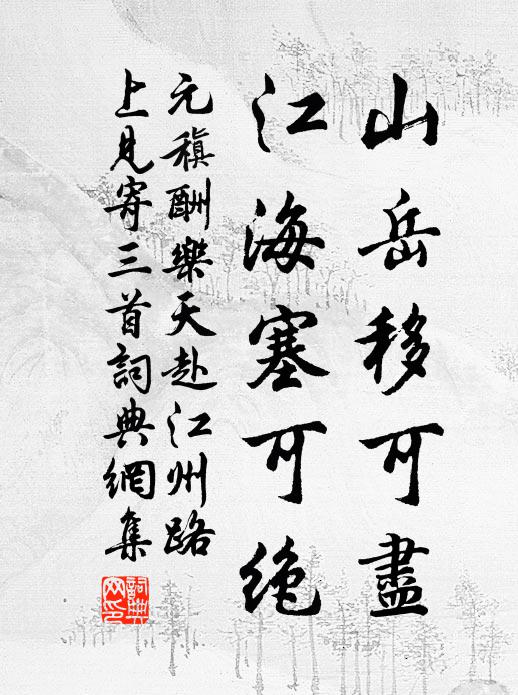 山岳移可盡
江海塞可絶
元稹酬樂天赴江州路
上見寄三首詞典網集
詞典網印